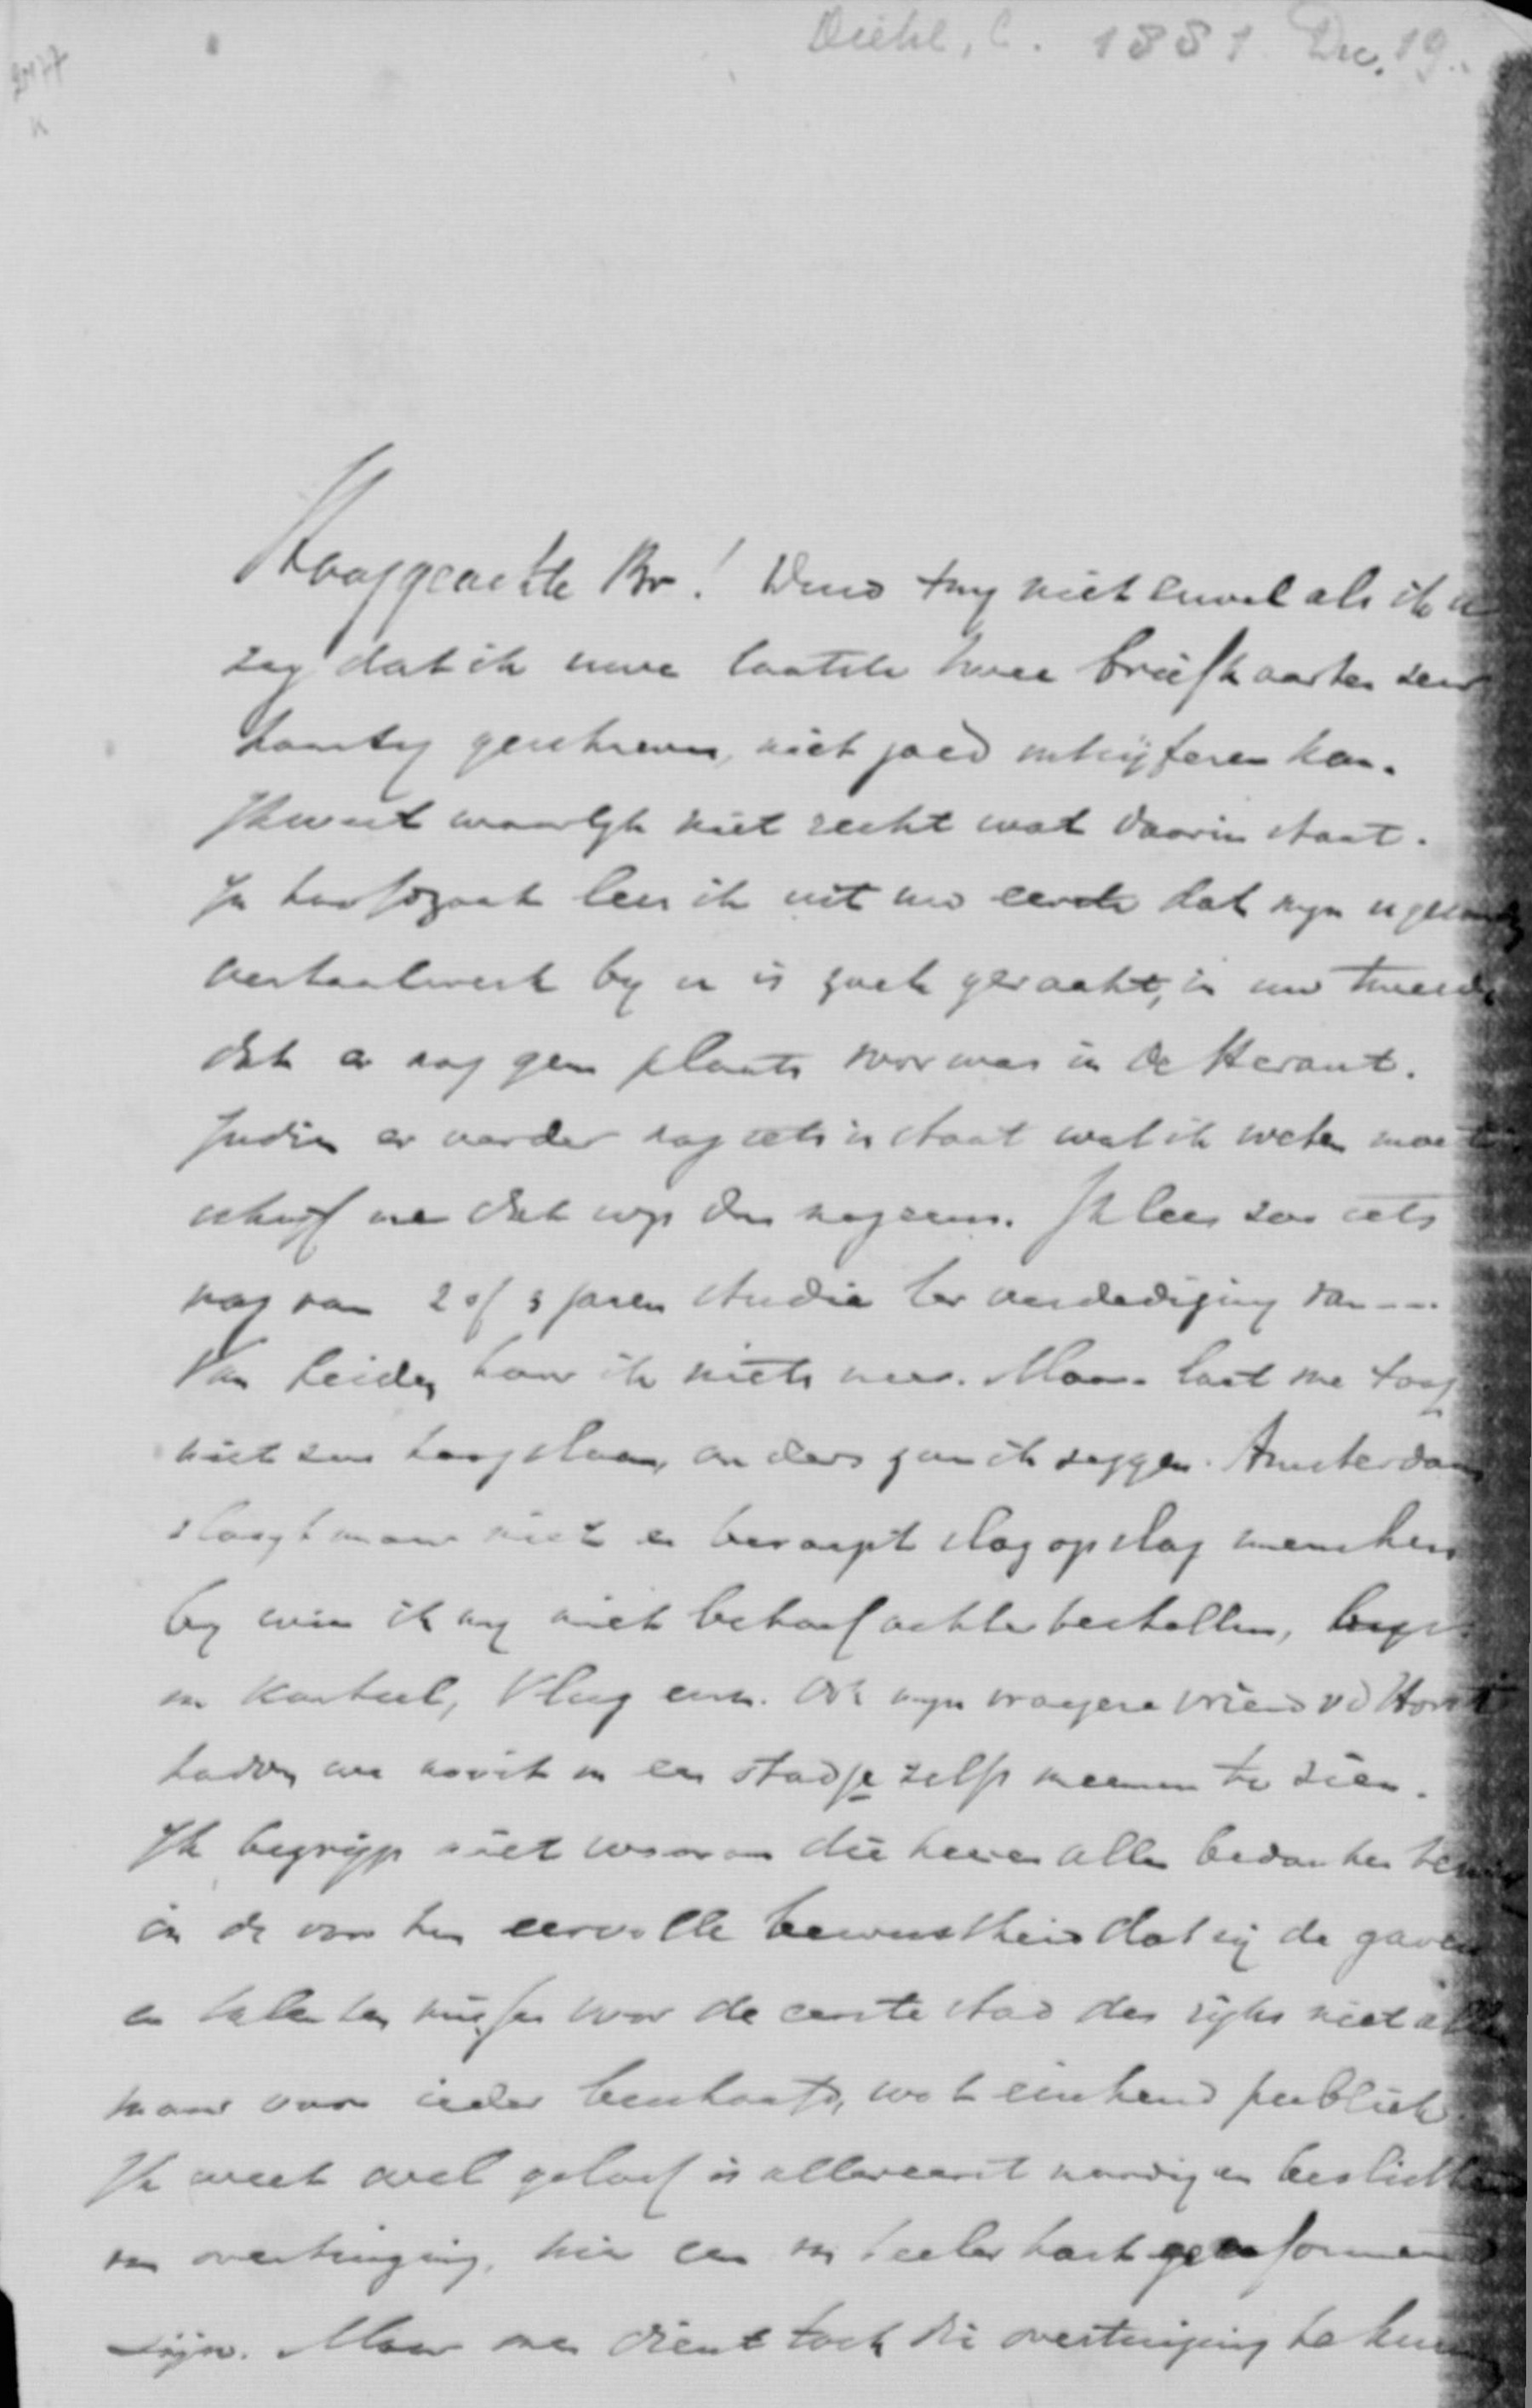 Diehl, C. 1881 Dec. 19.
Hooggeachte Br! Duid my niet euvel als ik u
zeg dat ik uwe laatste twee briefkaarten zeer
haastig geschreven, niet goed ontcijferen kan.
Ik weet waarlijk niet recht wat daarin staat.
In hoofdzaak lees ik uit uw eerste dat myn
vertaalwerk by u is zoek geraakt, in uw tweede
dat er nog geen plaats voor was in de Heraut.
Indien er verder nog iets in staat wat ik weten moet
schryf me dat wys dan nog eens. Ik lees zoo iets
nog van 2 of 3 jaren studie ter verdediging van ---
Van Leiden hoor ik niets meer. Maar laat me toch
niet zoo hoog staan, anders zou ik zeggen. Amsterdam
slaagt maar niet en beroept slag op slag menschen
by wie ik my niet behoef achter te stellen,
Kasteel, Vlug enz. Ook myn vroegere vriend vd Horst
hadden we nooit in een stadje zelfs meenen te zien.
Ik begryp niet waarom die heeren allen bedanken
in de voor hen eervolle bewustheid dat zy de gaven
en talenten missen voor de eerste stad des rijks niet
maar voor ieder beschaafd, wat eischend publiek
Ik weet wel geloof is allereerst noodig en beslistheid
van overtuiging, hier een in heeler hart gereformeerd
zijn. Maar men dient toch die overtuiging te kunnen